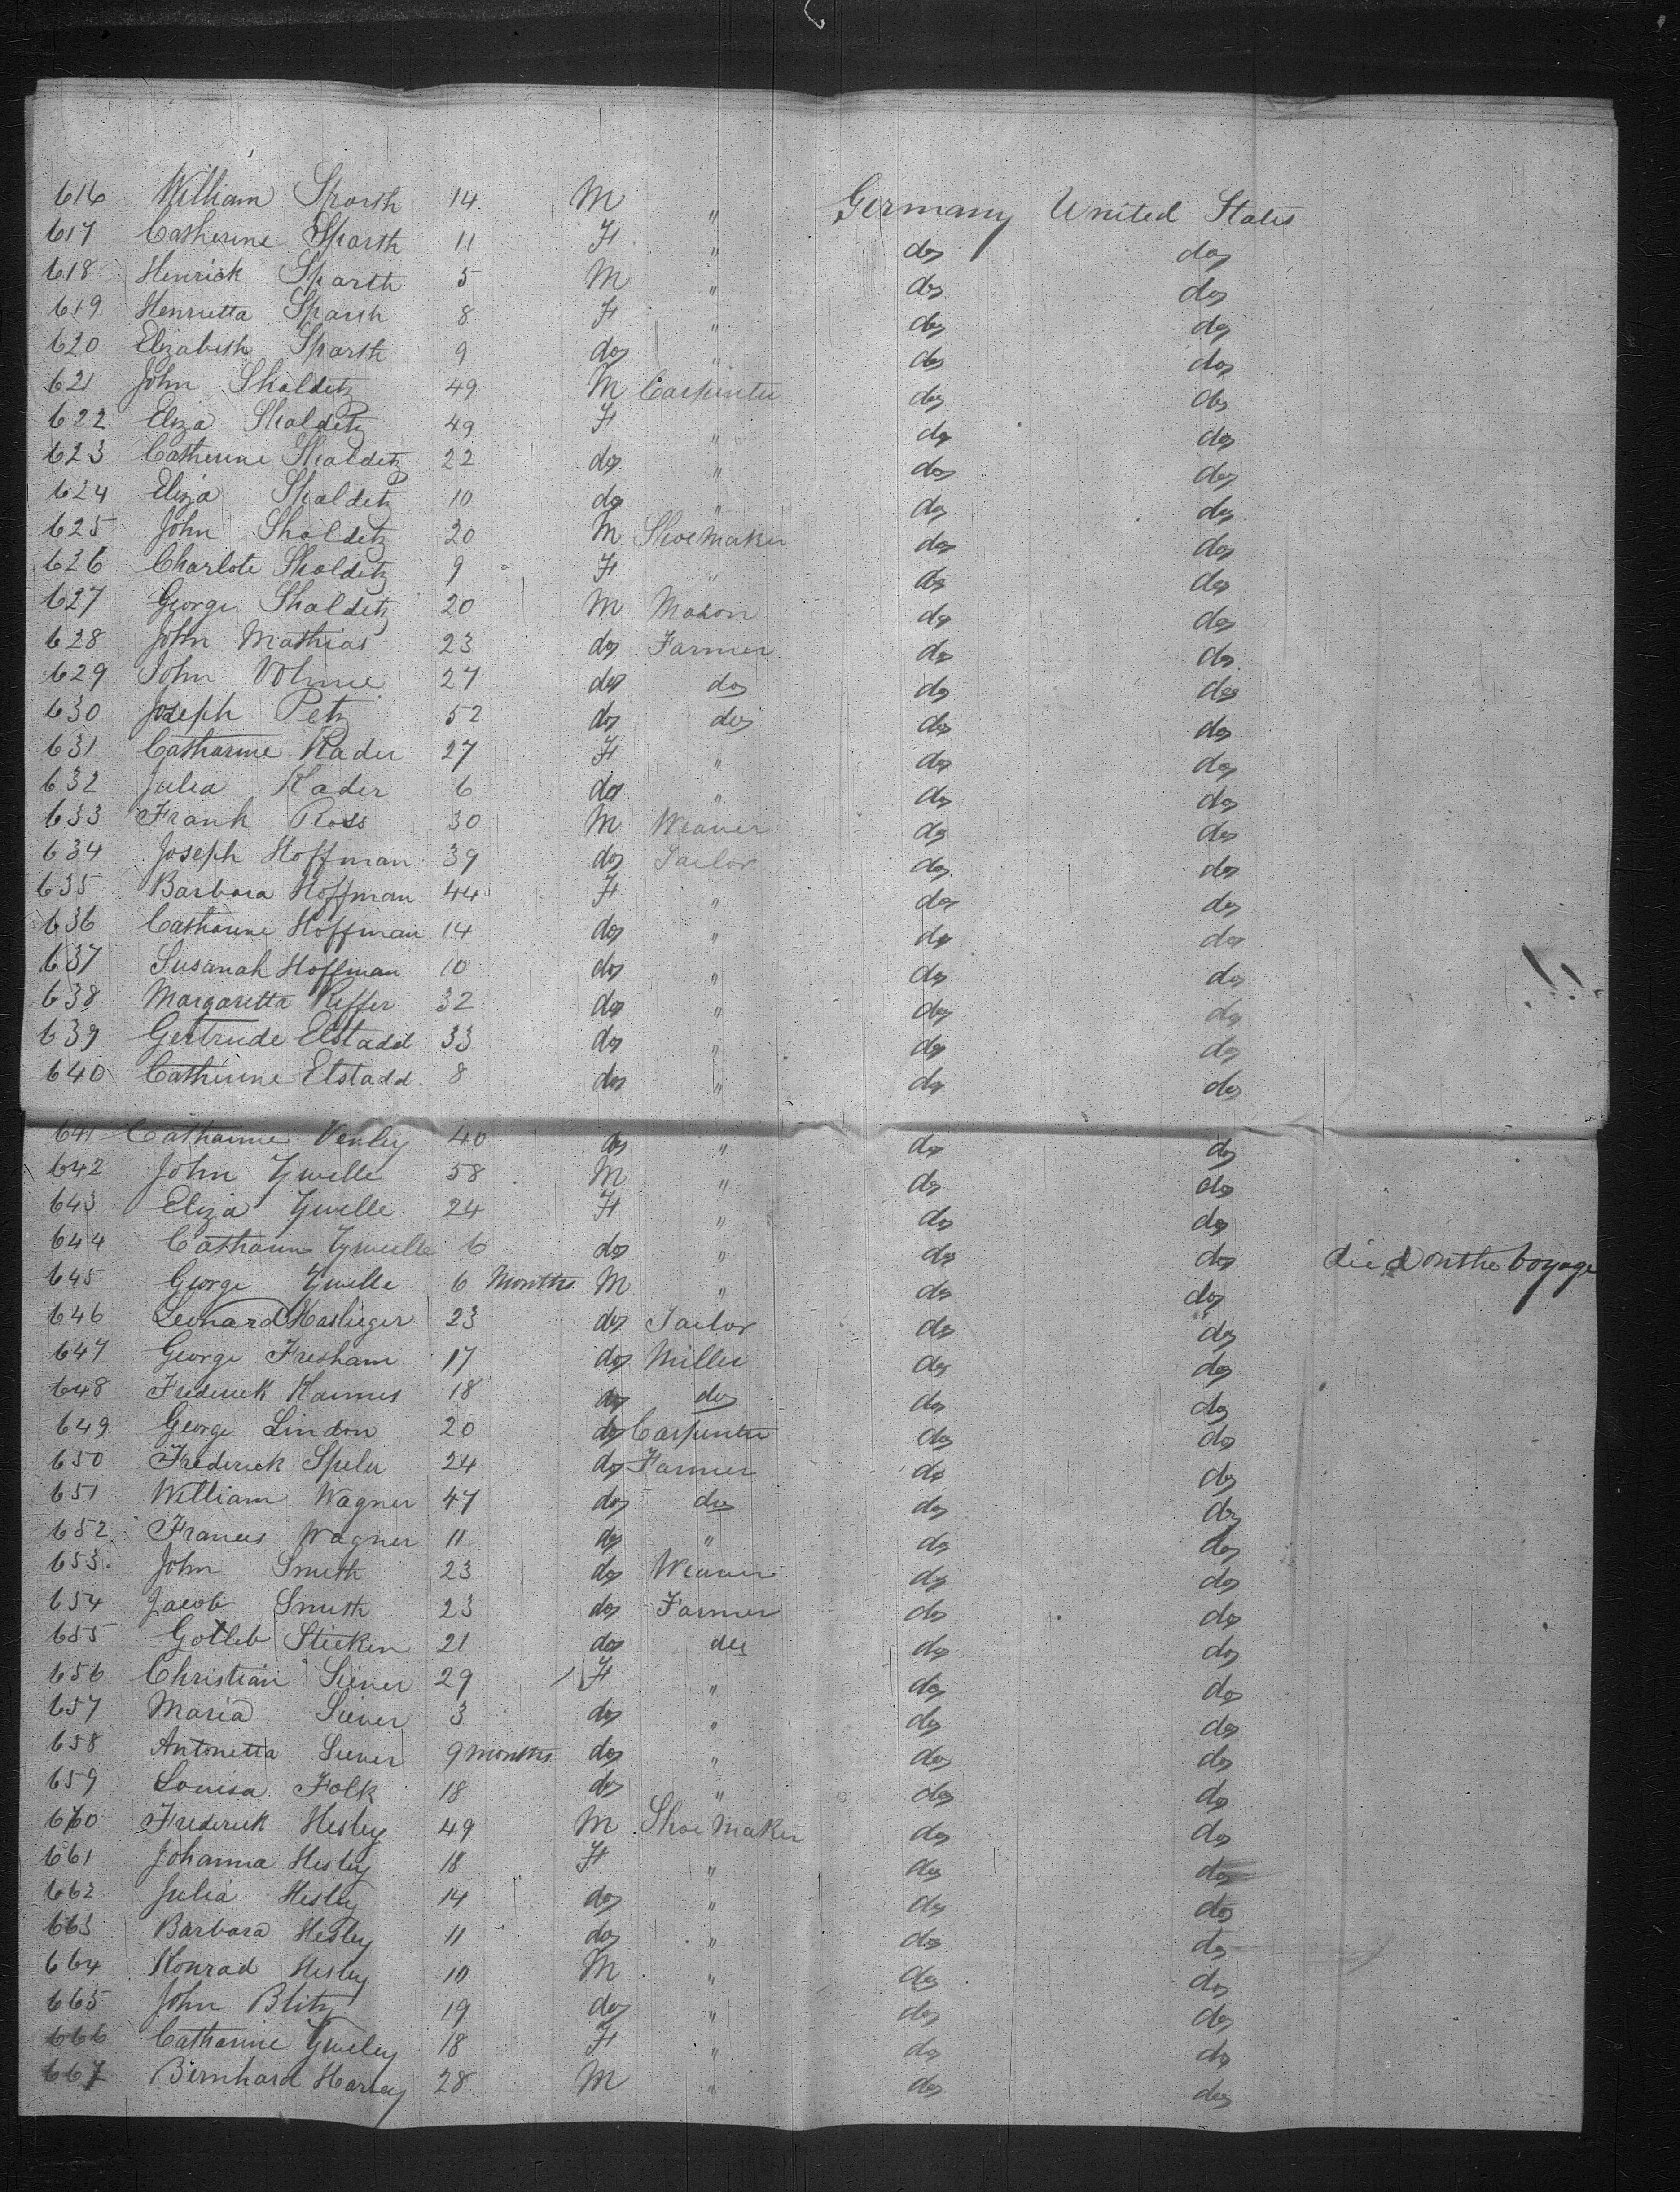 616 William Sparth 14 M " Germany United States
617 Catherine Sparth 11 F " do do
618 Henrick Sparth 5 M " do do
619 Henrietta Sparth 8 F " do do
620 Elizabeth Sparth 9 do " do do
621 John Shalditz 49 M Carpenter do do
622 Eliza Shalditz 49 F " do do
623 Catherine Shalditz 22 do " do do
624 Eliza Shalditz 10 do " do do
625 John Shalditz 20 M Shoemaker do do
626 Charlote Shalditz 9 F " do do
627 George Shalditz 20 M Mason do do
628 John Mathias 23 do Farmer do do
629 John Volmie 27 do do do do
630 Joseph Petz 52 do do do do
631 Catharine Kader 27 F " do do
632 Julia Kader 6 do " do do
633 Frank Ross 30 M Weaver do do
634 Joseph Hoffman 39 do Tailor do do
635 Barbara Hoffman 44 F " do do
636 Catharine Hoffman 14 do " do do
637 Susanah Hoffman 10 do " do do
638 Margaretta Keffer 32 do " do do
639 Gertrude Elstadd 33 do " do do
640 Catherine Elstadd 8 do " do do
641 Catharine Venley 40 do " do do
642 John Zwelle 58 M " do do
643 Eliza Zwelle 24 F " do do
644 Catharine Zwelle 6 do " do do died on the Voyage
645 George Zwelle 6 Months M " do do
646 Leonard Haslieger 23 do Tailor do do
647 George Fresham 17 do Miller do do
648 Frederick Kammes 18 do do do do
649 George Lindon 20 do Carpenter do do
650 Frederick Speler 24 do Farmer do do
651 William Wagner 47 do do do do
652 Frances Wagner 11 do " do do
653 John Smith 23 do Weaver do do
654 Jacob Smith 23 do Farmer do do
655 Gotleb Sticken 21 do do do do
656 Christian Siever 29 F " do do
657 Maria Siever 3 do " do do
658 Antonetta Siever 9 months do " do do
659 Louisa Folk 18 do " do do
660 Frederick Hesley 49 M Shoe Maker do do
661 Johanna Hesley 18 F " do do
662 Julia Hesley 14 do " do do
663 Barbara Hesley 11 do " do do
664 Konrad Hesley 10 M " do do
665 John Blitz 19 do " do do
666 Catharine Zweley 18 F " do do
667 Bernhard Harley 28 M " do do